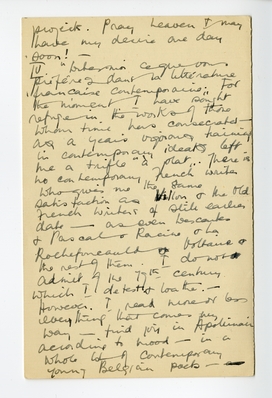 project. Pray heaven I may
have my desire one day
soon!
IV "Interview ce que vous
préférez dans la littérature
française contemporaine". For
the moment I have sought
refuge in the works of those
whom time has consecrated —
as a year's vigorous training
in contemporary ideas left
me a trifle "à plat". There is
no contemporary French writer
who gives me the same
satisfaction as Villon & the Old
French writers of still earlier
date — as even Descartes
& Pascal & Racine & La
Rochefoucauld & Voltaire &
the rest of them. I do not
admit of the 19th century
which I detest & loathe. —
However. I read more or less
everything that comes my
way — find joy in Apollinaire
according to mood — in a
whole lot of contemporary
young Belgian poets —